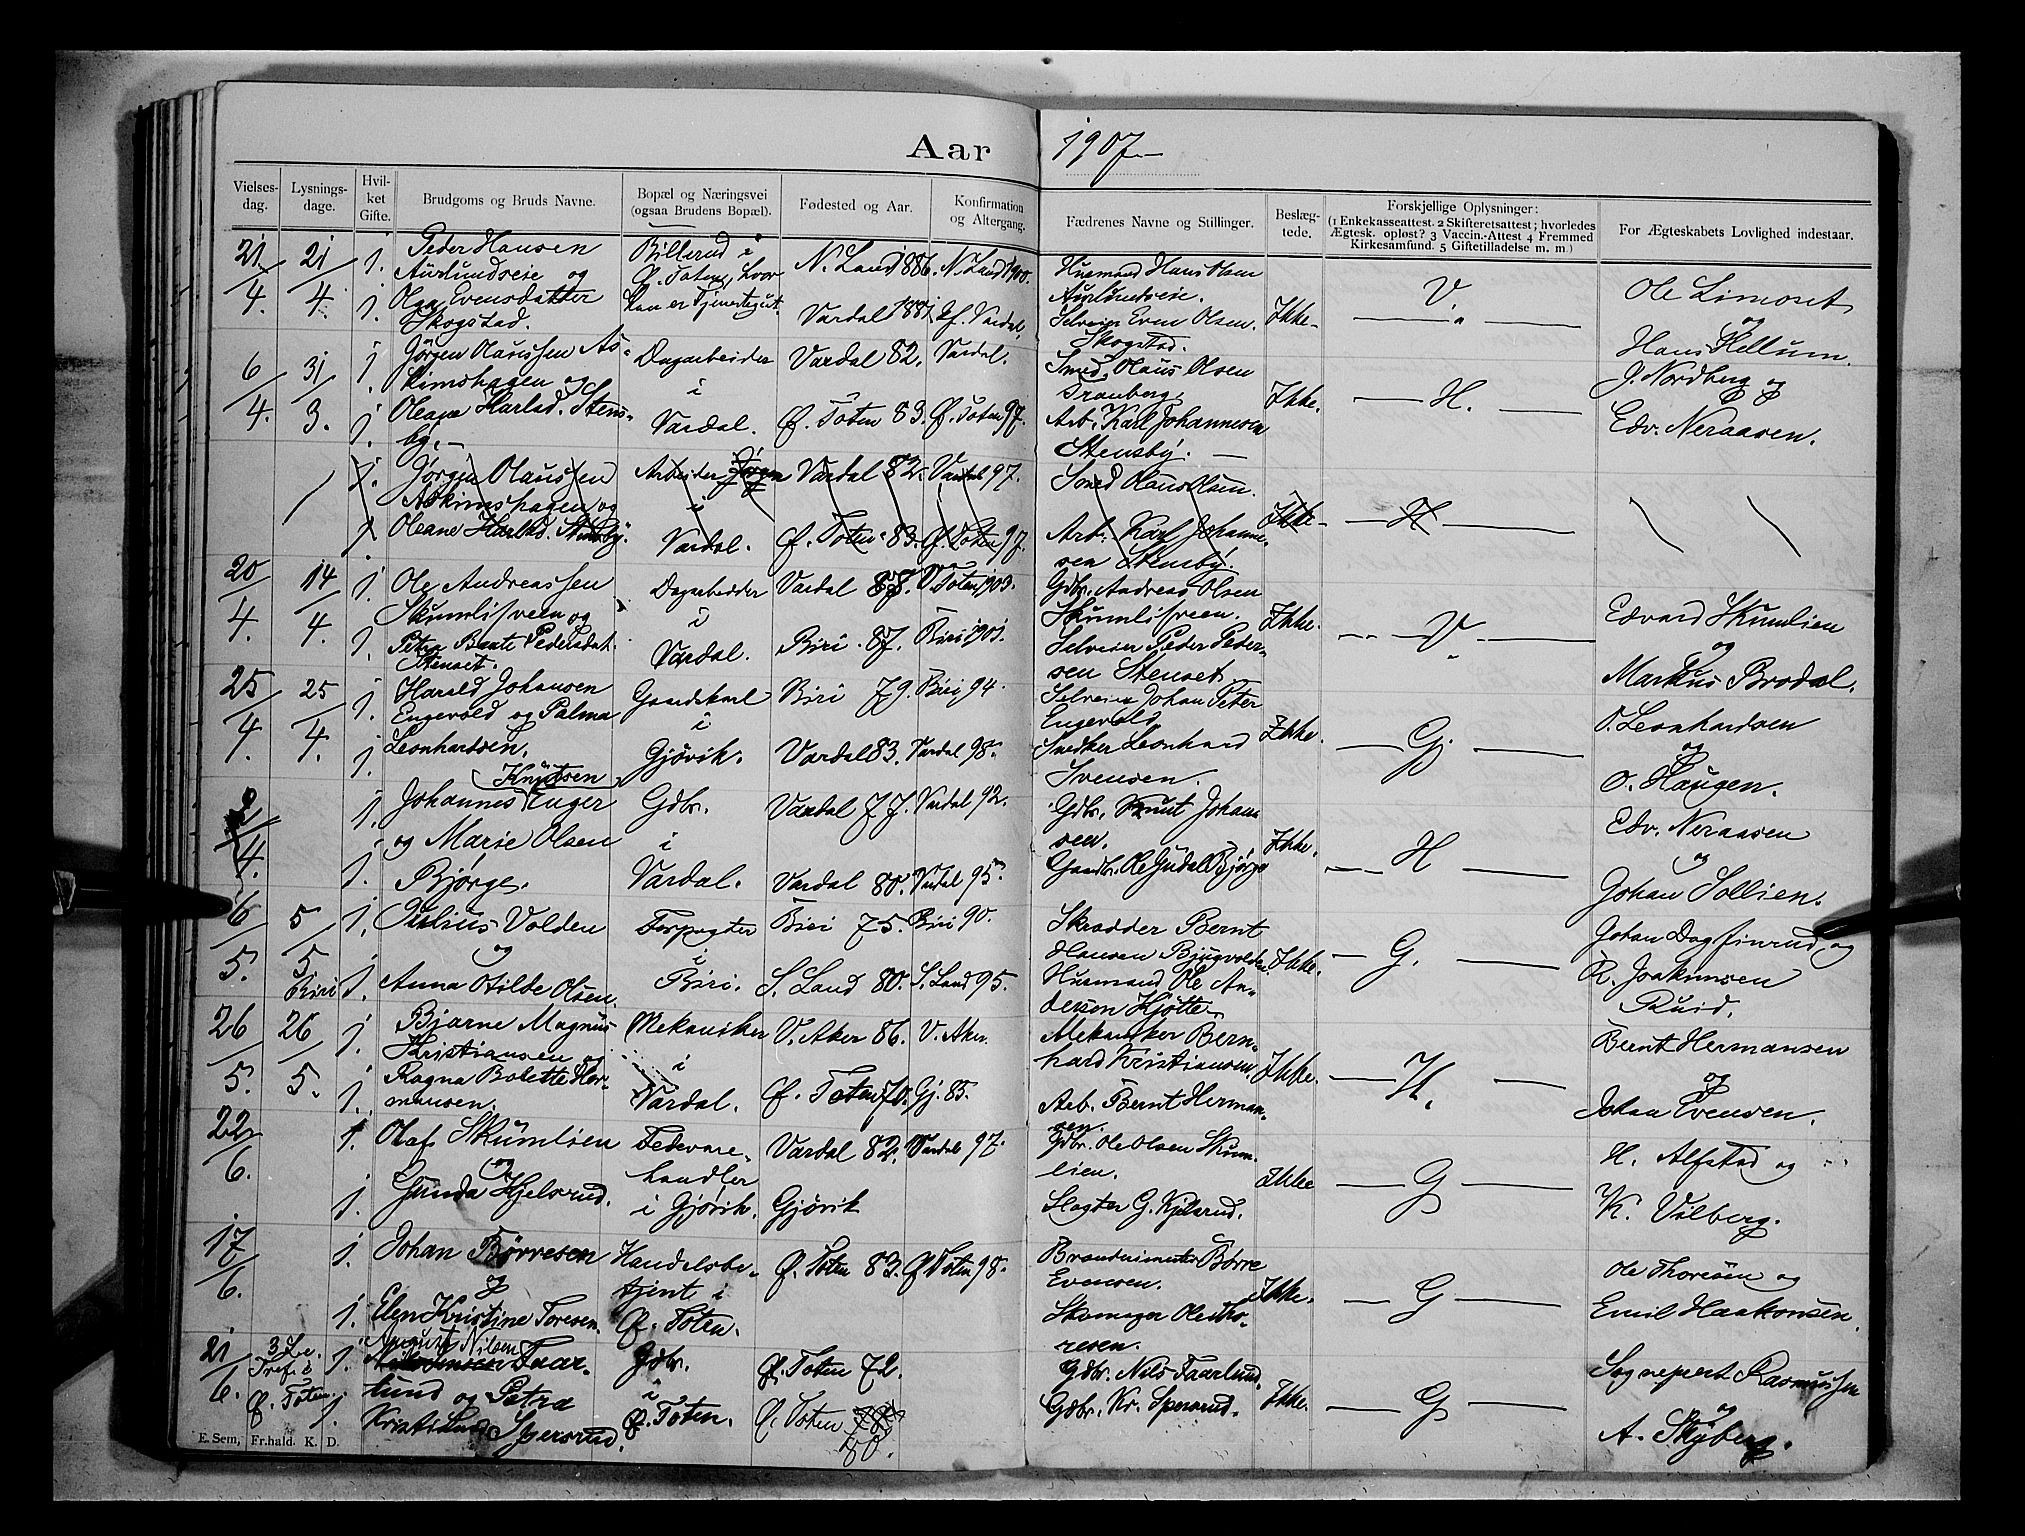 Aar 1907
Vielsesdag. Lysningsdage. Hvilket Gifte. Brudgoms og Bruds Navne. Bopæl og Næringsvei (ogsaa Brudens Bopæl). Fødested og Aar. Konfirmation og Altergang. Fædrenes Navne og Stillinger. Beslægtede. Forskjellige Oplysninger: (1 Enkekasseattest. 2 Skifteretsattest; hvorledes Ægtesk. opløst? 3 Vaccin.-Attest 4 Fremmed Kirkesamfund. 5 Giftetilladelse m. m.) For Ægteskabets Lovlighed indestaar.
21/4. 21/4. 1. Peder Hansen Billerud i N. Land 1886. N. Land 1900. Husmand Hans Olsen
Aurlundseie og Ø. Toten, hvor Aurlundseie. V. Ole Limoret
1. Olga Evensdatter han er Tjenestegut. Vardal 1887. Vardal. Selveier Even Olsen Ikke og
Skogstad. Skogstad. Hans Hellum.
6/4. 31/3. 1. Jørgen Olaussen As- Dagarbeider Vardal 82. Vardal. Smed Olaus Olsen J. Nordberg og
kimshagen og i Tranberg Ikke. H.
1. Oleane Harlad. Stens- Vardal. Ø. Toten 83. Ø. Toten 97. Arb. Karl Johannesen Edv. Neraasen.
by. Stensby.
1. Jørgen Olaussen Arbeider Vardal 82. Vardal 97. Smed Olaus Olsen.
Askimshagen og i Ikke H
1. Oleane Harlad. Stensby. Vardal. Ø. Toten 83. Ø. Toten 97. Arb. Karl Johanne-
sen Stensby.
20/4. 14/4. 1. Ole Andreassen Dagarbeider Vardal 88. V. Toten 1903. Gdbr. Andreas Olsen
Skumlisveen og i Skumlisveen. Ikke. V. Edvard Skumlien
1. Petra Beate Pedersdat. Vardal. Biri 87. Biri 1901. Selveier Peder Peder- og
Stenset. sen Stenset. Markus Brodal.
25/4. 25/4. 1. Harald Johansen Gaardskarl Biri 79. Biri 94. Selveier Johan Peter
Engevold og Palma i Engevold Ikke. Gj O. Leonhardsen
1. Leonhardsen. Gjøvik. Vardal 83. Vardal 98. Snedker Leonhard og
Svensen. O. Haugen.
Knutsen
/4. 1. Johannes Enger Gdbr. Vardal 77. Vardal 92. Gdbr. Knut Johan- Edv. Neraasen
og Marie Olsen i sen. Ikke. H og
1. Bjørge. Vardal. Vardal 80. Vardal 95. Gaardbr. Ole Gudal Bjørge Johan Sollien.
6/5. 5/5 Biri 1. Julius Volden Forpagter Biri 75. Biri 90. Skrædder Bernt Johan Dagfinrud og
og i Hansen Bjugvolden. Ikke. G. R. Joakimsen
1. Anna Otilde Olsen. Biri. S. Land 80. S. Land 95. Husmand Ole An- Ruud.
dersen Hjotte
26/5. 26/5. 1. Bjarne Magnus Mekaniker V. Aker 86. V. Aker. Mekaniker Bern- Bernt Hermansen
Kristiansen og i hard Kristiansen. Ikke. H. og
1. Ragna Bolette Her- Vardal. Ø. Toten 70. Gj. 85. Arb. Bernt Herman- Johan Evensen.
mansen. sen.
22/6. 1. Olaf Skumlien Fedevare- Vardal 82. Vardal 97. Gdbr. Ole Olsen Skum- H. Alfstad og
og handler lien. Ikke G
1. Gunda Kjelsrud. i Gjøvik. Gjøvik Slagter G. Kjelsrud. K. Vilberg.
17/6. 1. Johan Børresen Handelsbe- Ø. Toten 83. Ø Toten 98. Brandmester Børre Ole Thoresen og
og tjent i Evensen. Ikke. G
1. Elen Kristine Toresen. Ø. Toten. Skomager Ole Tho- Emil Haakonsen.
resen.
21/6. 3 Tref. i Ø. Toten. 1. August Nilsen Faar- Gdbr. Ø. Toten 72. Gdbr. Nils Faarlund. Sogneprest Rasmussen
1. lund og Petra i Gdbr. Kr. Spersrud. Ikke. G og
Kristi Spersrud. Ø. Toten. Ø. Toten 80. A. Skyberg.
E. Sem, Fr.hald. K. D.